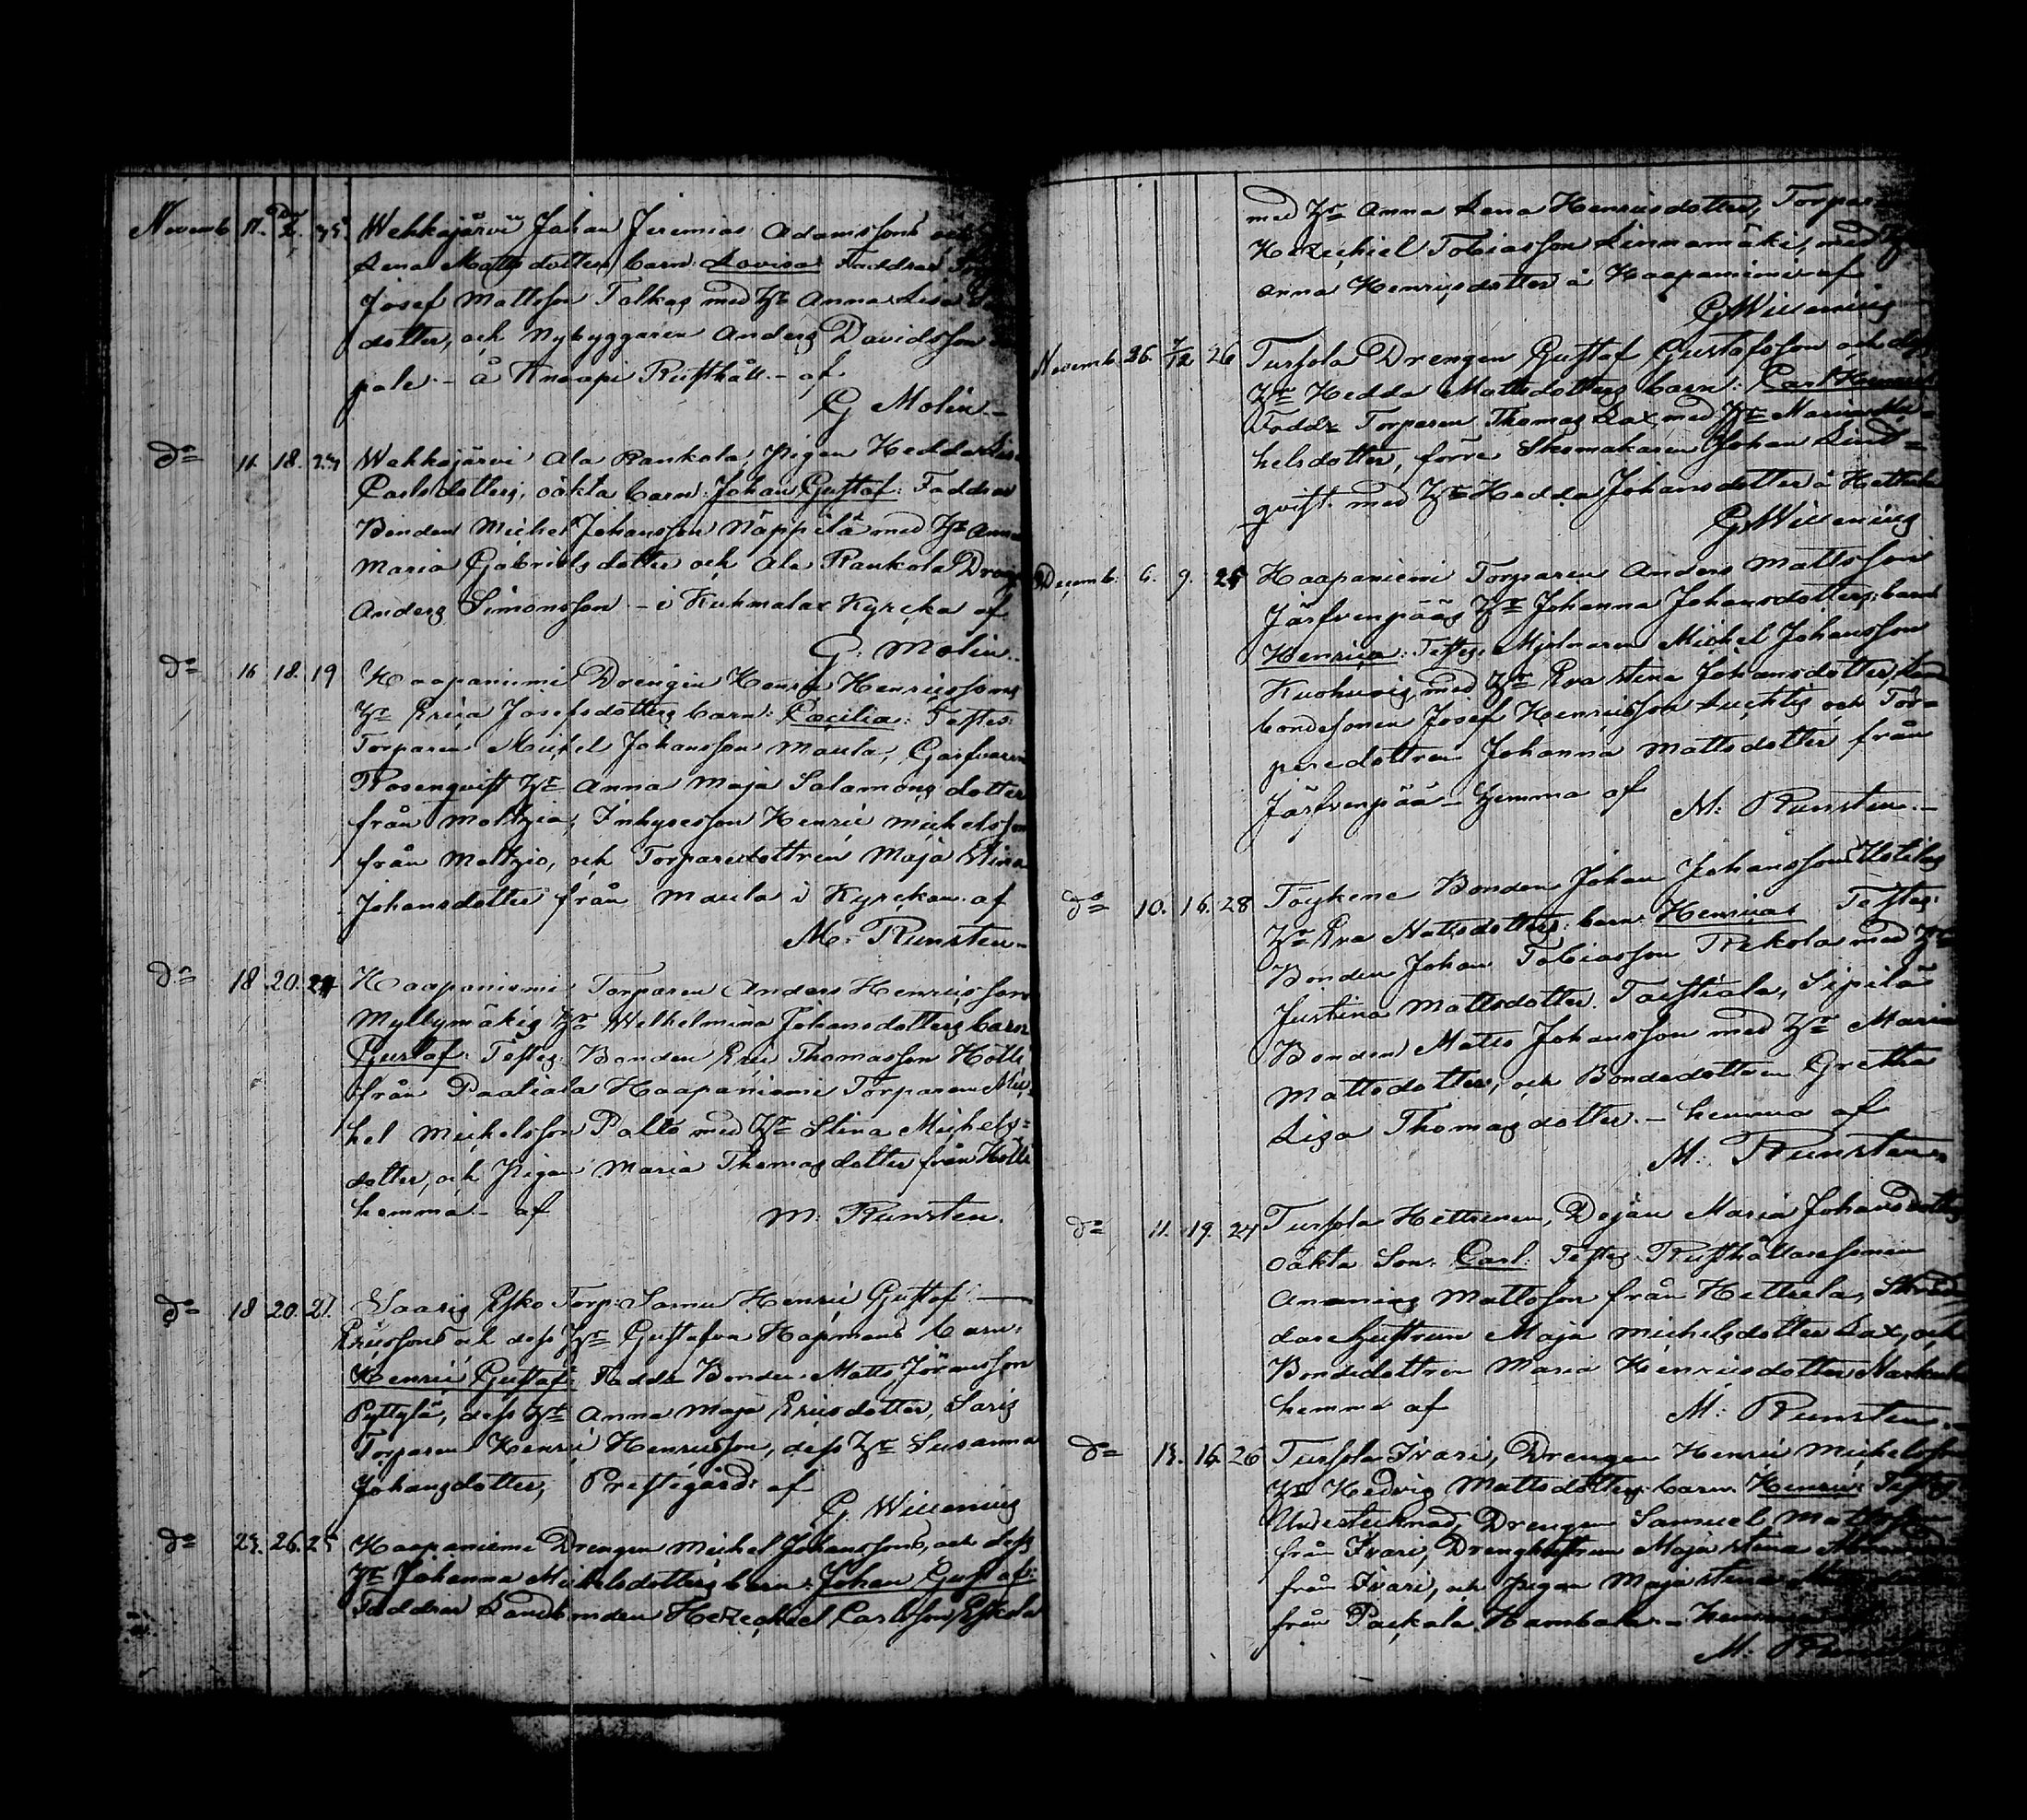 Novemb 17. Dec 2. 35. Wehkajärvi Johan Jeremias Adamssons och
Lena Mattsdotters barn: Lovisa: Faddrar
Josef Mattsson Talkag med H:u Anna Lisa
dotter, och Nybyggaren Anders Davidsson
pale. – å Knaapi Rusthåll. – af
G Molin. –
do 11. 18. Wehkajärvi Ala Rankola, Pigan Hedda Lisa
Carlsdotters, oäkta barn: Johan Gustaf: Faddrar
Bonden Michel Johansson Näppilä med H:u Anna
Maria Gabrielsdotter och Ala Rankola Dreng
Anders Simonsson – i Kuhmalax Kyrcka af
G. Molin.
do 16 18. 19 Haapaniemi Drengen Henric Henricssons
H:u Erica Josefsdotters barn: Cæcilia: Testes:
Torparen Michel Johansson Maula, Garfvaren
Rosenqvist H:u Anna Maja Salamonsdotter
från Moltzia, Inhysesson Henric Michelsson
från Moltzio, och Torparedottren Maja Stina
Johansdotter från Maula i Kyrckan af
M: Runsten –
do 18 20. Haapaniemi Torparen Anders Henricsson
Myllymäkis H:u Wilhelmina Johansdotters barn
Gustaf: Testes: Bonden Eric Thomasson Hölli
från Paaliala Haapaniemi Torparen Mic=
hel Michelsson Palto med H:u Stina Michels=
dotter, och Pigan Maria Thomasdotter från Hölli
hemma – af M: Runsten.
do 18 20. 27. Saaris Esko Torp: Samu Henric Gustaf
Ericssons och dess H:u Gustafva Hapmans barn:
Henric Gustaf: Faddr: Bonden Matts Jöransson
Pyttylä, dess H:u Anna Maja Ericsdotter, Saris
Torparen Henric Henricsson, dess H:u Susanna
Johansdotter, Prestegård: af
G Willening
do 23. 26. 25 Haapaniemi Drengen Michel Johanssons, och dess
H:u Johanna Michelsdotters barn: Johan Gustaf:
Faddrar Landbonden Hezechiel Carlsson Eskola
med H:u Anna Lena Henricsdotter, Torparen
Hezechiel Tobiasson Linnamäki, med H:u
Anna Henricsdotter å Haapaniemi af
G Willening
Novemb. 26. 7/12 26 Tursola Drengen Gustaf Gustafsson och dess
H:u Hedda Mattsdotters barn: Carl Henric
Faddr: Torparen Thomas Lax med H:u Maria Mic=
helsdotter, förre Skomakaren Johan Lind=
qvist med H:u Hedda Johansdotter å
G Willening
Decemb. 6. 9. 25 Haapaniemi Torparen Anders Mattsson
Järfvenpääs H:u Johanna Johansdotters barn
Henrica: Testes: Mjölnaren Michel Johansson
Kuohuvis, med H:u Eva Stina Johansdotter, Land
bondesonen Josef Henricsson Luchtis och Tor=
paredottren Johanna Mattsdotter från
Järfvenpää – Hemma af M: Runsten –
do 10. 16. 28 Töykene Bonden Johan Johansson Uotilas
H:u Eva Mattsdotters: barn: Henrica: Testes:
Bonden Johan Tobiasson Rekola med H:u
Justina Mattsdotter. Taustiala, Sipilä
Bonden Matts Johansson med H:u Maria
Mattsdotter, och Bondedottren Gretha
Lisa Thomasdotter. – hemma af
M: Runsten
do 11. 19. 27 Tursola Hettienen, Dejan Maria Johansdotters
oäkta Son: Carl: Testes: Rusthållaresonen
Ananias Mattsson från Hettula, Skräd
darehustrun Maja Michelsdotter Lax, och
Bondedottren Maria Henricsdotter
hemma af M: Runsten.
do 13. 16. 26 Tursola Ivari, Drengen Henric Michelsson
H:u Hedvig Mattsdotters barn: Henric: Testes:
Undertecknad, Drengen Samuel Mattsson
från Ivari, Drenghustrun Maja Stina
från Ivari, och Pigan Maja Stina
från Packala Hambale. – Hemma af
M: Runsten